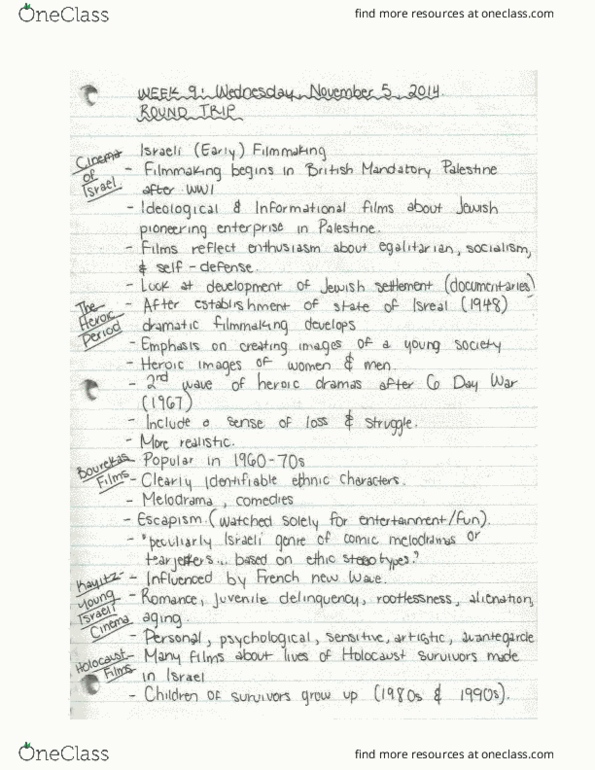 OneClass
find more resources at oneclass.com
WEEK 9: Wednesday, November 5, 2014.
ROUND TRIP
Cinema of Israel
Israeli (Early) Filmmaking
- Filmmaking begins in British Mandatory Palestine
after WWI
- Ideological & Informational films about Jewish
pioneering enterprise in Palestine.
- Films reflect enthusiasm about egalitarian, socialism,
& self-defense.
- Look at development of Jewish settlement (documentaries)
The Heroic Period
- After establishment of state of Isreal (1948)
dramatic filmmaking develops
- Emphasis on creating images of a young society
- Heroic images of women & men.
- 2nd wave of heroic dramas after 6 Day War
(1967)
- Include a sense of loss & struggle.
- More realistic.
Bourekas Films
- Popular in 1960-70s
- Clearly identifiable ethnic characters.
- Melodrama, comedies
- Escapism (watched solely for entertainment/fun).
- "peculiarly Israeli genre of comic melodramas or
tearjerkers... based on ethic stereotypes."
Kayitz - Young Israeli Cinema
- Influenced by French new wave.
- Romance, juvenile delinquency, rootlessness, alienation,
aging.
- Personal, psychological, sensitive, artistic, avantegarde
Holocaust Films
- Many films about lives of Holocaust survivors made
in Israel
- Children of survivors grow up (1980s & 1990s).
OneClass
find more resources at oneclass.com